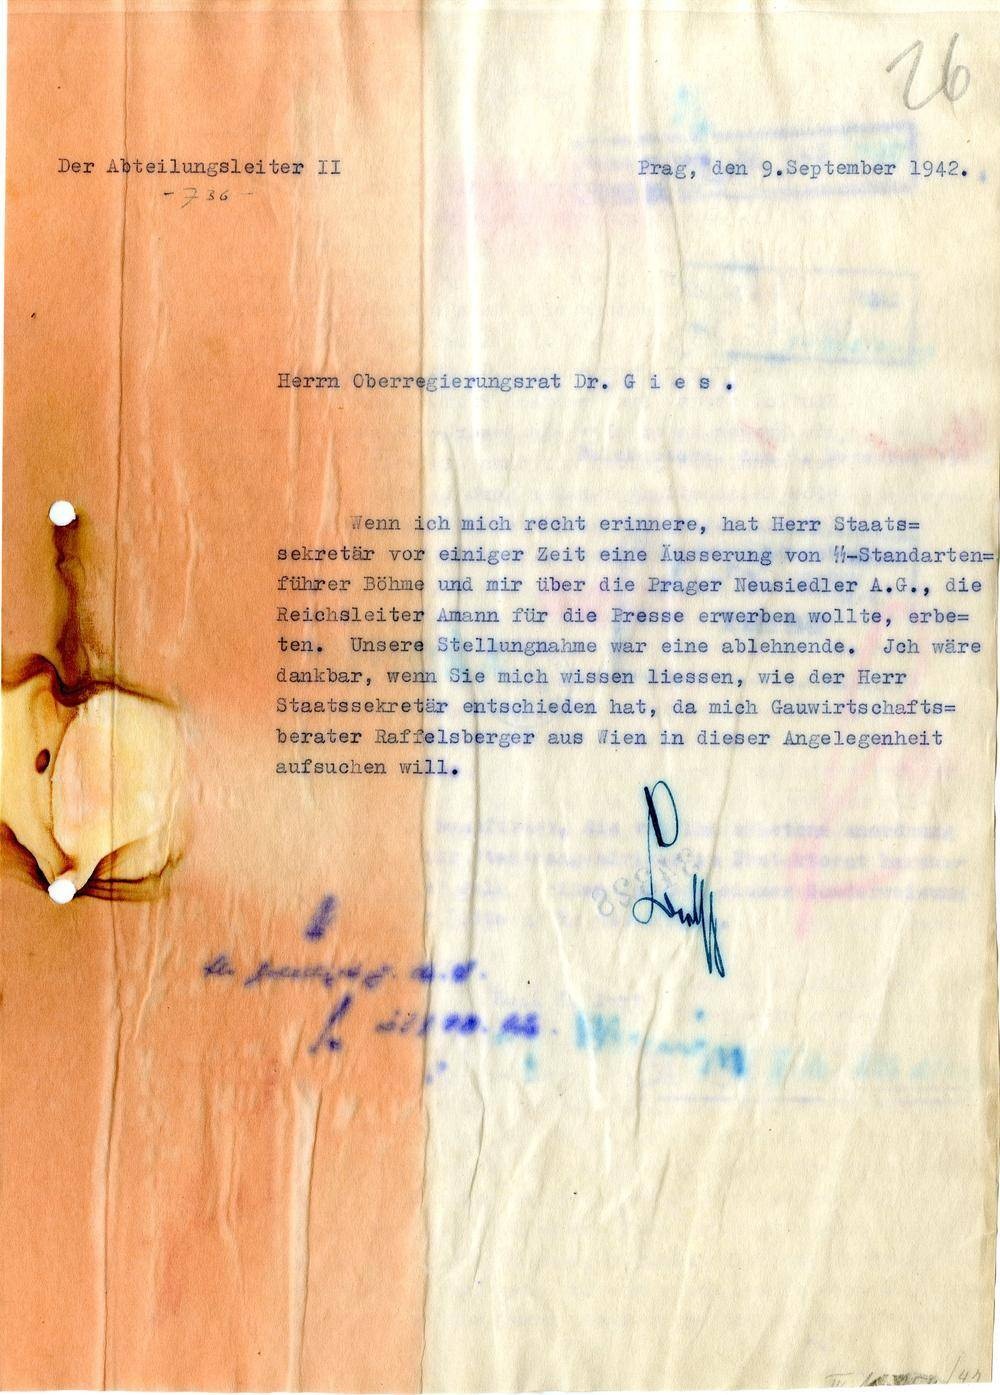 26
Der Abteilungsleiter II
Prag, den 9.September 1942.
- 736 -
Herrn Oberregierungsrat Dr. G i e s .
Wenn ich mich recht erinnere, hat Herr Staats=
sekretär vor einiger Zeit eine Äusserung von ᛋᛋ-Standarten=
führer Böhme und mir über die Prager Neusiedler A.G., die
Reichsleiter Amann für die Presse erwerben wollte, erbe=
ten. Unsere Stellungnahme war eine ablehnende. Jch wäre
dankbar, wenn Sie mich wissen liessen, wie der Herr
Staatssekretär entschieden hat, da mich Gauwirtschafts=
berater Raffelsberger aus Wien in dieser Angelegenheit
aufsuchen will.